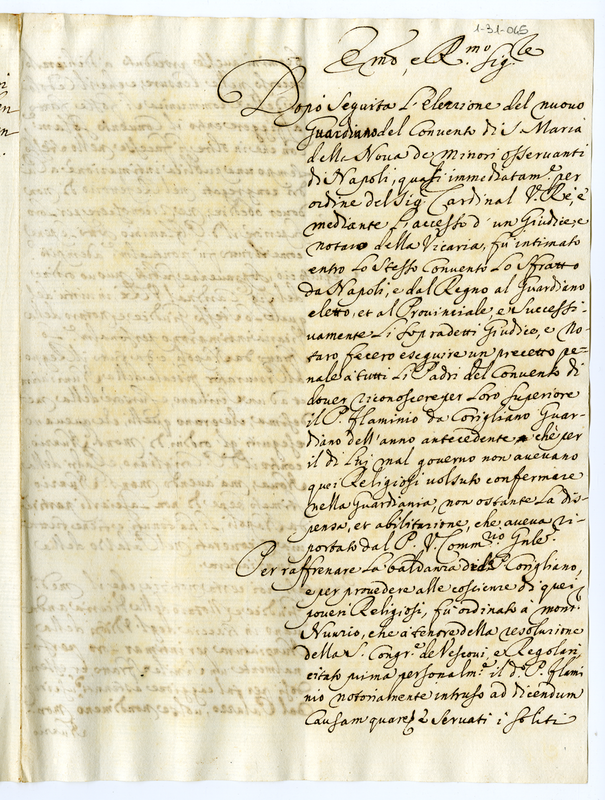 1-31-045
Emo, e R.mo Sig.re
Dopo Seguita L'elezzione del nuovo
Guardiano del Convento di S. Maria
della Nova de Minori osservanti
di Napoli, quasi immediatam.e per
ordine del Sig.r Cardinal V. Rè, e
mediante L'accesso d'un Giudice, e
notaro della Vicaria, fù intimato
entro Lo Stesso Convento Lo Sfratto
da Napoli, e dal Regno al Guardiano
eletto, et al Provinciale, e Successi-
vamente Li sopradetti Giudice, e No-
taro fecero eseguire un precetto pe-
nale à tutti Li Padri del Convento di
dover riconoscere per Loro Superiore
il P. flaminio da Corigliano Guar-
diano dell'anno antecedente che per
il di Lui mal governo non avevano
quei Religiosi volsuto confermare
nella Guardiania, non ostante La dis-
pensa, et abilitazione, che aveva ri-
portato dal P. V. Comm.rio Gnle.
Per raffrenare La baldanza del Corigliano,
e per provedere alle coscienze di quei
poveri Religiosi, fù ordinato a mons.r
Nunzio, che à tenore della resoluzione
della S. Congr.e de Vescovi, e Regolari
citato prima personalm.e il d.o P. flami
nio notoriamente intruso ad dicendum
Causam quare, e Servati i soliti